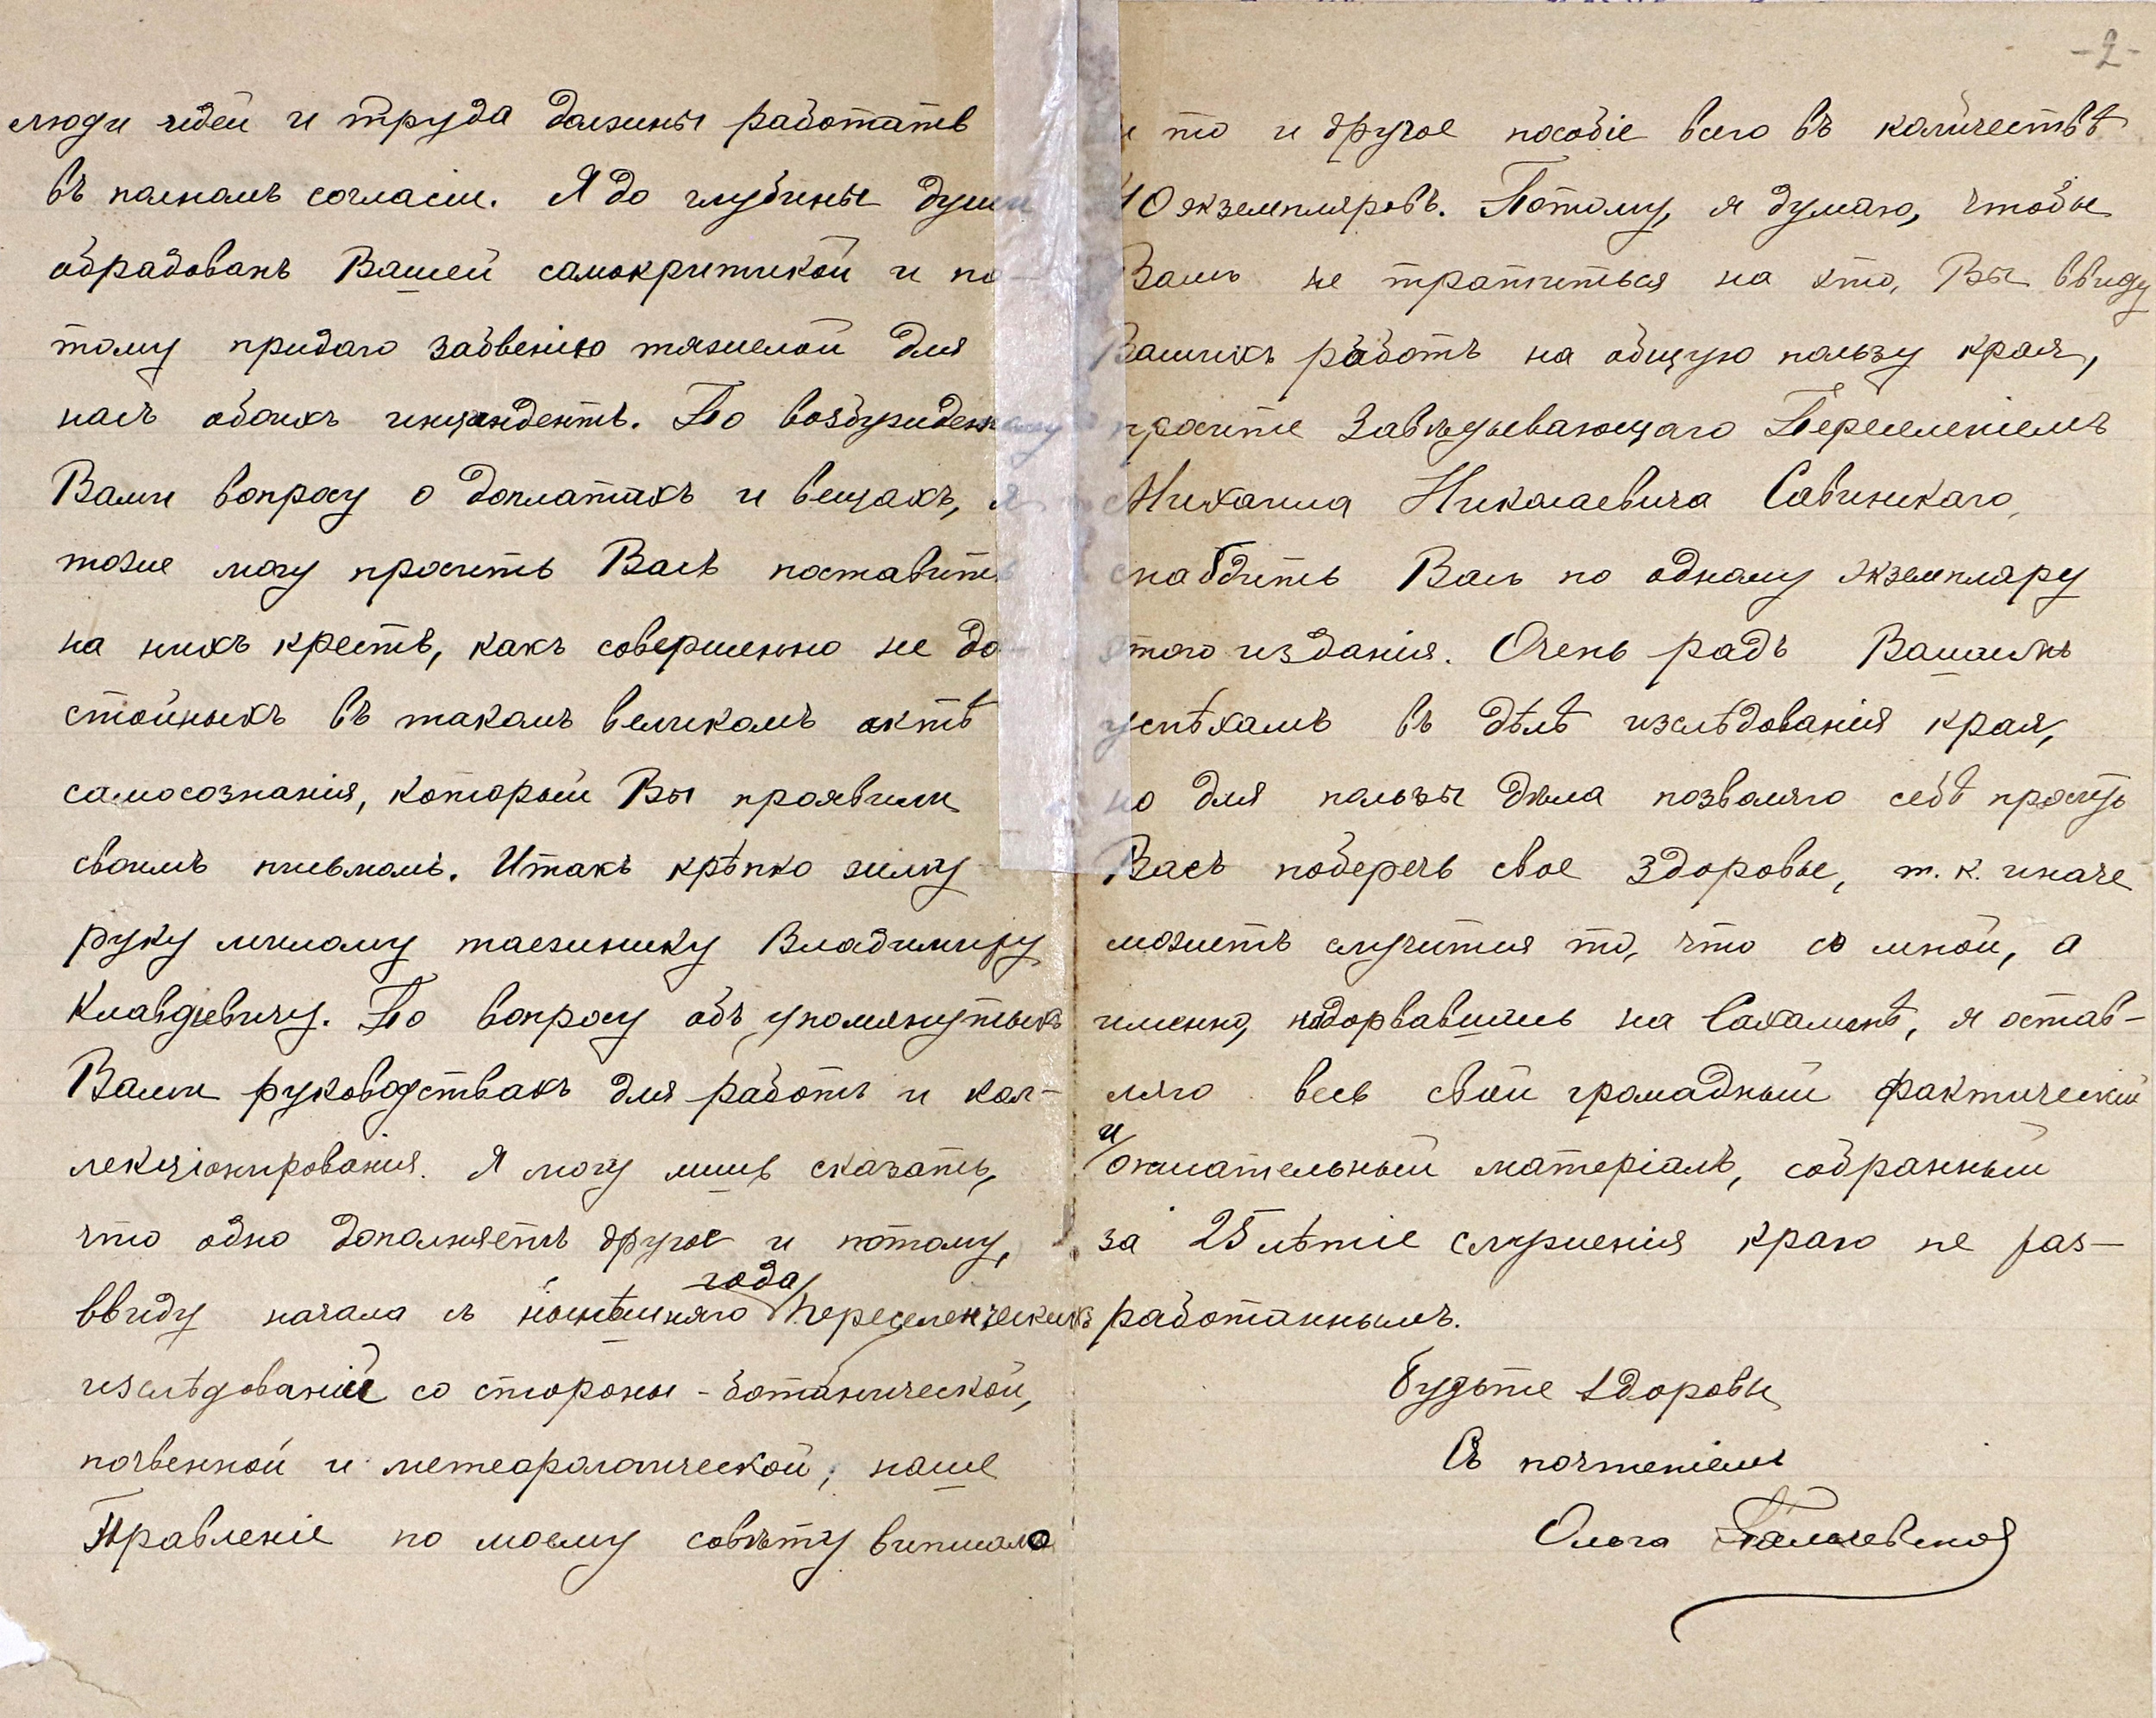 люди идеи и труда должны работать
въ полномъ согласіи. Я до глубины души
обрадованъ Вашей самокритикой и по-
тому придаю забвенію тяжелой для
насъ обоихъ инцидентъ. По возбужденному
Вами вопросу о доплатахъ и вещахъ, я
тоже могу просить Васъ поставить
на нихъ крестъ, какъ совершенно не до-
стойныхъ въ такомъ великомъ актѣ
самосознанія, который Вы проявили
своимъ письмомъ. Итакъ крѣпко жму
руку милому таежнику Владимиру
Клавдіевичу. По вопросу объ упомянутыхъ
Вами руководствахъ для работъ и кол-
лекціонированія. Я могу лишь сказать,
что одно дополняетъ другое и потому,
ввиду начала съ нынѣшняго года Переселенческихъ
изслѣдованій со стороны - ботанической,
почвенной и метеорологической, наше
Правленіе по моему совѣту выписало
-2-
и то и другое пособіе всего въ количествѣ
40 экземпляровъ. Потому, я думаю, чтобы
Вамъ не тратиться на это, Вы ввиду
Вашихъ работъ на общую пользу края,
просите Завѣдывающаго Переселеніемъ
Михаила Николаевича Савинскаго,
снабдить Васъ по одному экземпляру
этого изданія. Очень радъ Вашимъ
успѣхамъ въ дѣлѣ изслѣдованія края,
но для пользы дѣла позволяю себѣ просить
Васъ поберечь свое здоровье, т. к. иначе
можетъ случится то, что со мной, а
именно, надорвавшись на Сахалинѣ, я остав-
ляю весь свой громадный фактическій
и описательный матеріалъ, собранный
за 25 лѣтіе служенія краю не раз-
работаннымъ.
Будьте здоровы
Съ почтеніемъ
Ольга Пальчевская